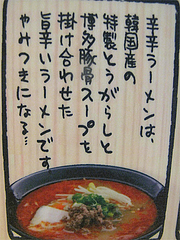 辛辛ラーメンは、
韓国産の
特製とうがらしと
博多豚骨スープを
掛け合わせた
旨辛いラーメンです
やみつきになる…